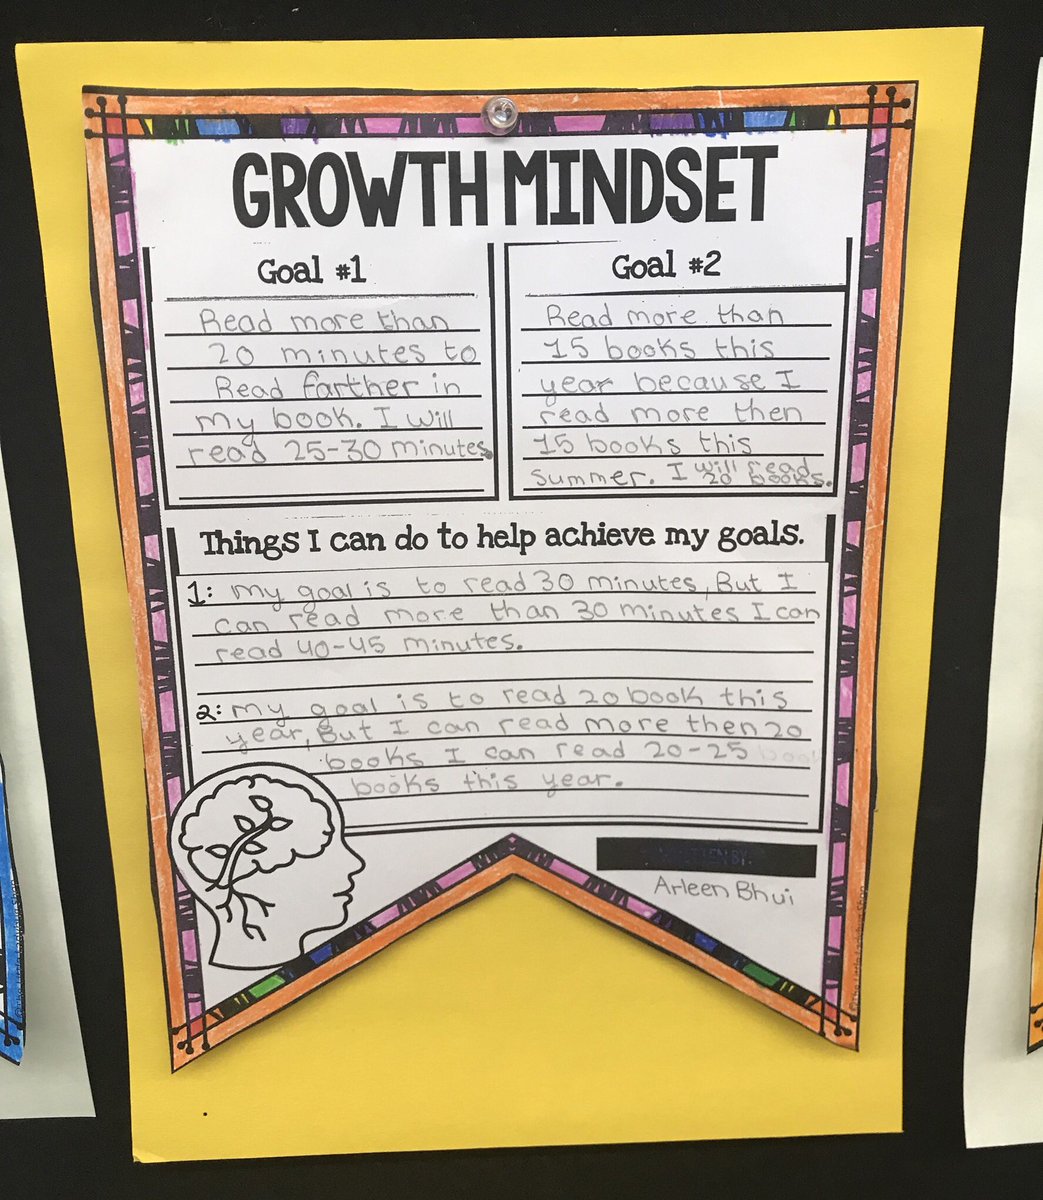 GROWTH MINDSET
Goal #1
Read more than
20 minutes to
Read farther in
my book. I will
read 25-30 minutes.
Goal #2
Read more than
15 books this
year because I
read more then
15 books this
Summer. I will read
20 books.
Things I can do to help achieve my goals.
1: my goal is to read 30 minutes, But I
can read more than 30 minutes I can
read 40-45 minutes.
2: my goal is to read 20 book this
year, But I can read more then 20
books I can read 20-25
books this year.
Arleen Bhui